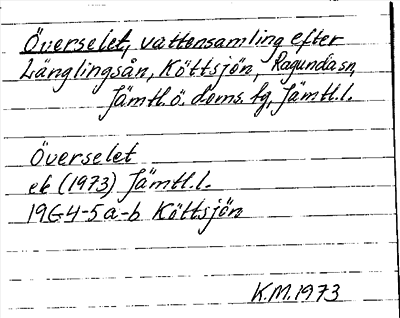 Överselet, vattensamling efter
Länglingsån, Köttsjön, Ragunda sn,
Jämtl. ö. doms. fg, Jämtl. l.
Överselet
ek (1973) Jämtl. l.
19G4-5a-b Köttsjön
K.M. 1973